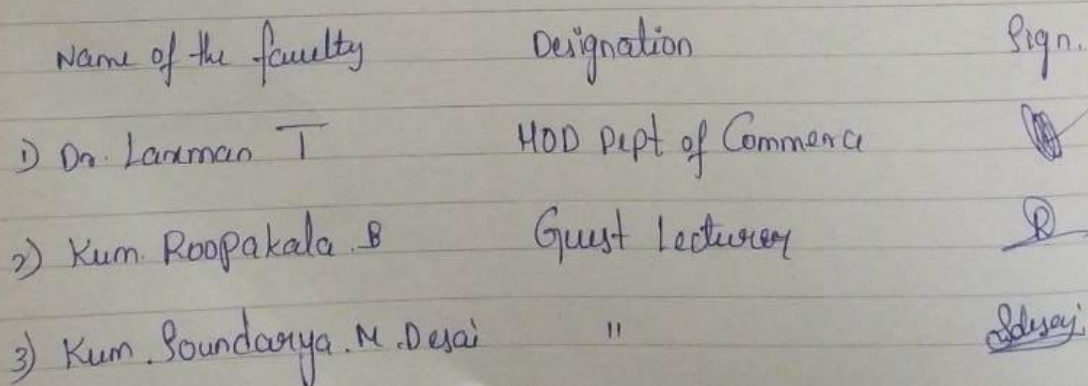 Name of the faculty Designation Sign.
1) Dr. Laxman T HOD Dept of Commerce
2) Kum. Roopakala .B Guest Lecturer
3) Kum. Soundarya .M .Desai " Sdesai